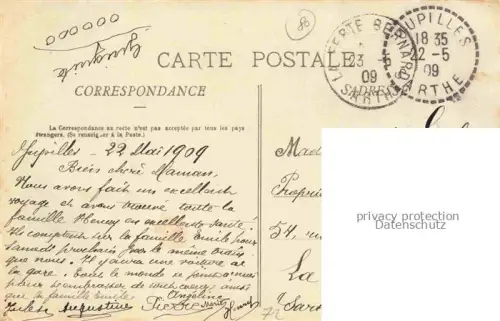 Guiguite
CARTE POSTALE
CORRESPONDANCE
ADRESSE
LA FERTE BERNARD
23 -5
09
SARTHE
JUPILLES
18 35
22 -5
09
SARTHE
La Correspondance au recto n'est pas acceptée par tous les pays
étrangers. (Se renseigner à la Poste.)
Jupilles - 22 Mai 1909
Bien chère Maman,
Nous avons fait un excellent
voyage et avons trouvé toute la
famille en excellente santé!
Ils comptent sur la famille Emile pour
samedi prochain par le même train
que nous. Il y aura une voiture à
la gare. Tout le monde se joint à moi
pour t'embrasser de mille ainsi
que la famille Emile
Angeline
Juliette Augustine Pierre
Mad
Propri
54, rue
La
Sart
privacy protection
Datenschutz